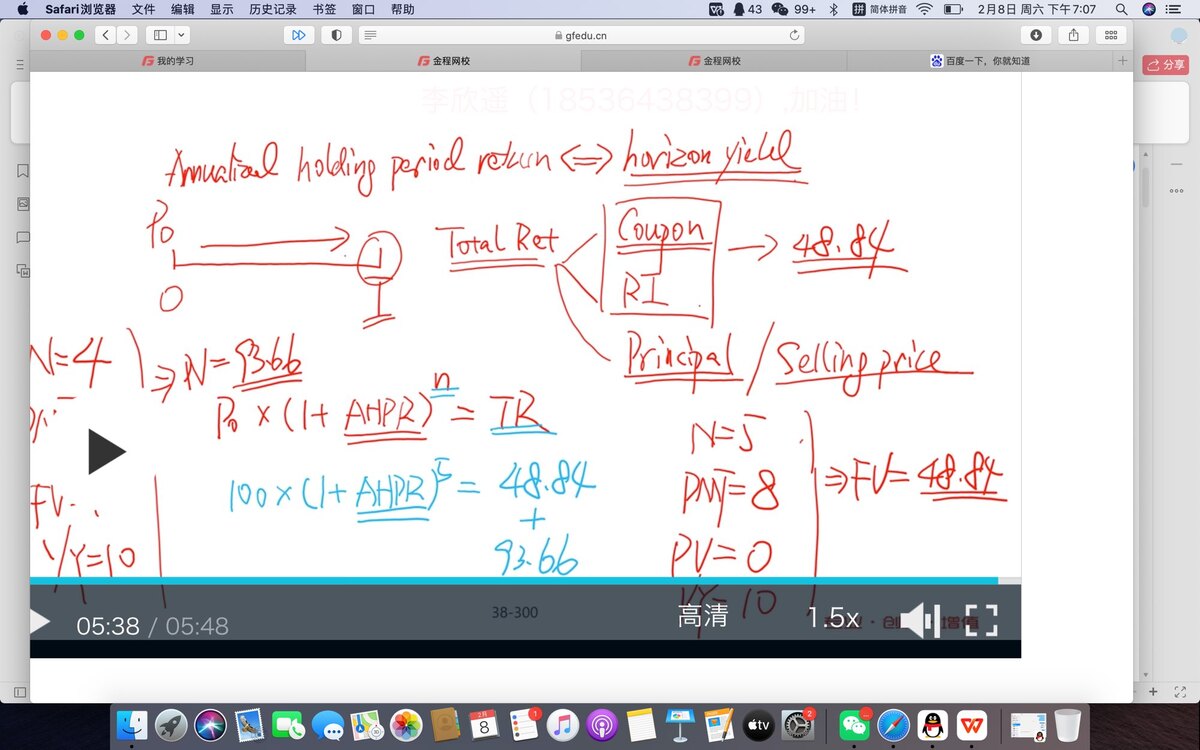 Safari浏览器 文件 编辑 显示 历史记录 书签 窗口 帮助 43 99+ 拼 简体拼音 2月8日 周六 下午7:07
gfedu.cn
我的学习 金程网校 金程网校 百度一下，你就知道
分享
李欣遥（18536438399）,加油！
Annualized holding period return <=> horizon yield
P0
0
1
Total Ret
Coupon
RI
→ 48.84
Principal / Selling price
N=4
⇒ N=93.66
P0 × (1+AHPR)^n = TR
100×(1+AHPR)^5 = 48.84
+
93.66
FV
I/Y=10
N=5
PMT=8
PV=0
I/Y=10
⇒FV=48.84
38-300
05:38 / 05:48
高清
1.5x
增值
2月
8
1
tv
2